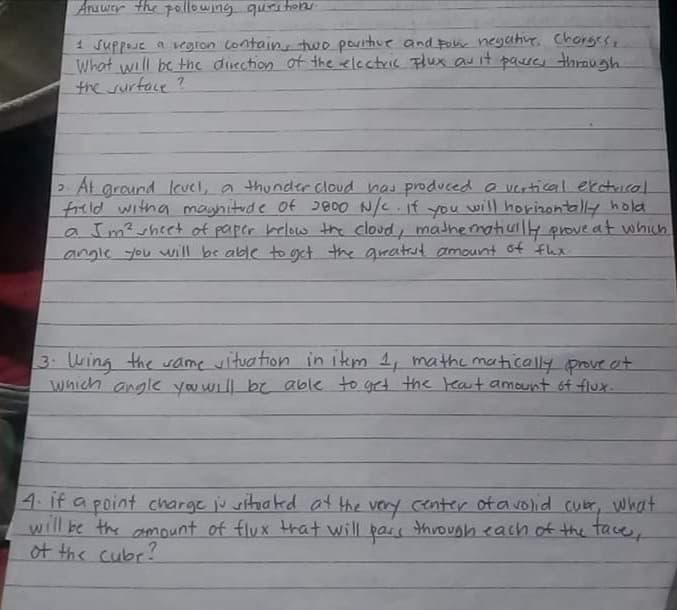 Answer the following questions
1 Suppose a region contains two positive and four negative charges,
What will be the direction of the electric flux as it passes through
the surface?
2. At ground level, a thunder cloud has produced a vertical electrical
field with a magnitude of 2800 N/C. If you will horizontally hold
a 5m² sheet of paper below the cloud, mathematically prove at which
angle you will be able to get the greatest amount of flux.
3. Using the same situation in item 1, mathematically prove at
which angle you will be able to get the least amount of flux.
4. if a point charge is situated at the very center of a solid cube, what
will be the amount of flux that will pass through each of the face,
of the cube?